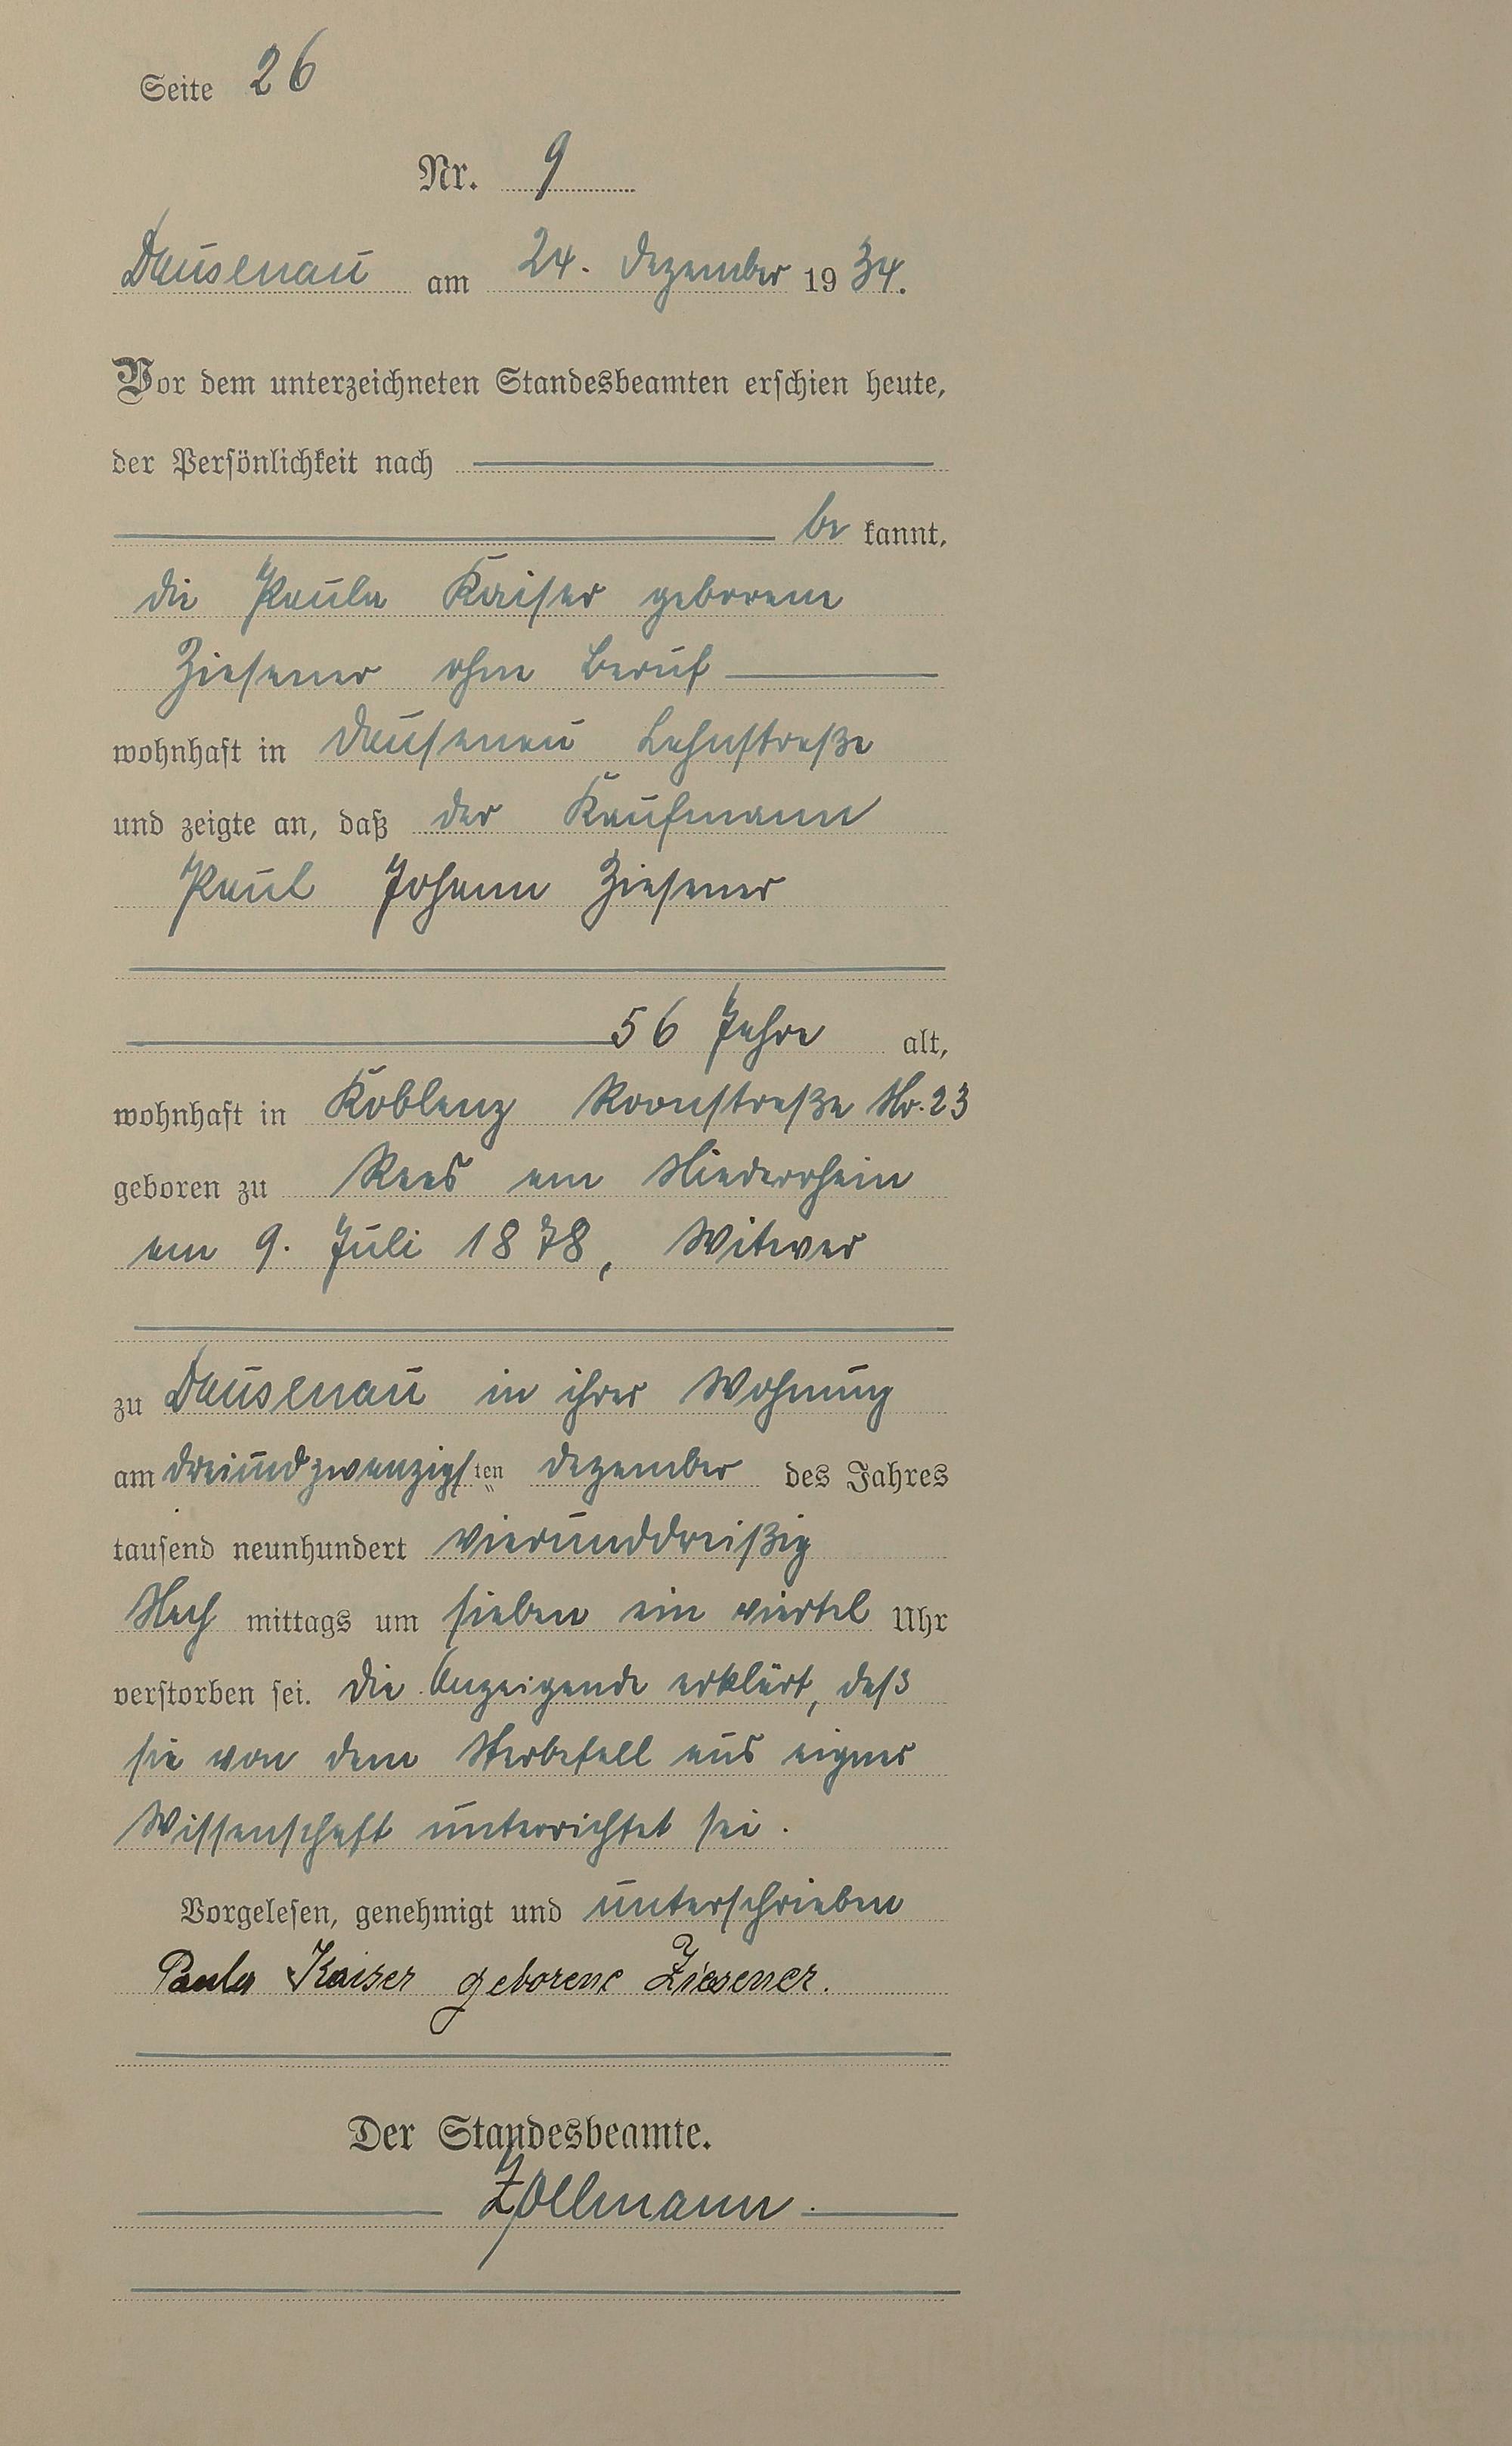 Seite 26
Nr. 9
Dausenau am 24. Dezember 1934.
Vor dem unterzeichneten Standesbeamten erschien heute,
der Persönlichkeit nach
be kannt,
die Paula Kaiser geborene
Ziesener ohne Beruf
wohnhaft in Dausenau Lahnstraße
und zeigte an, daß der Kaufmann
Paul Johann Ziesener
56 Jahre alt,
wohnhaft in Koblenz Roonstraße Nr. 23
geboren zu Rees am Niederrhein
am 9. Juli 1878, Witwer
zu Dausenau in ihrer Wohnung
am dreiundzwanzigsten Dezember des Jahres
tausend neunhundert vierunddreißig
Nach mittags um sieben ein viertel Uhr
verstorben sei. Die Anzeigende erklärt, daß
sie von dem Sterbefall aus eigner
Wissenschaft unterrichtet sei.
Vorgelesen, genehmigt und unterschrieben
Paula Kaiser geborene Ziesener.
Der Standesbeamte.
Zollmann.